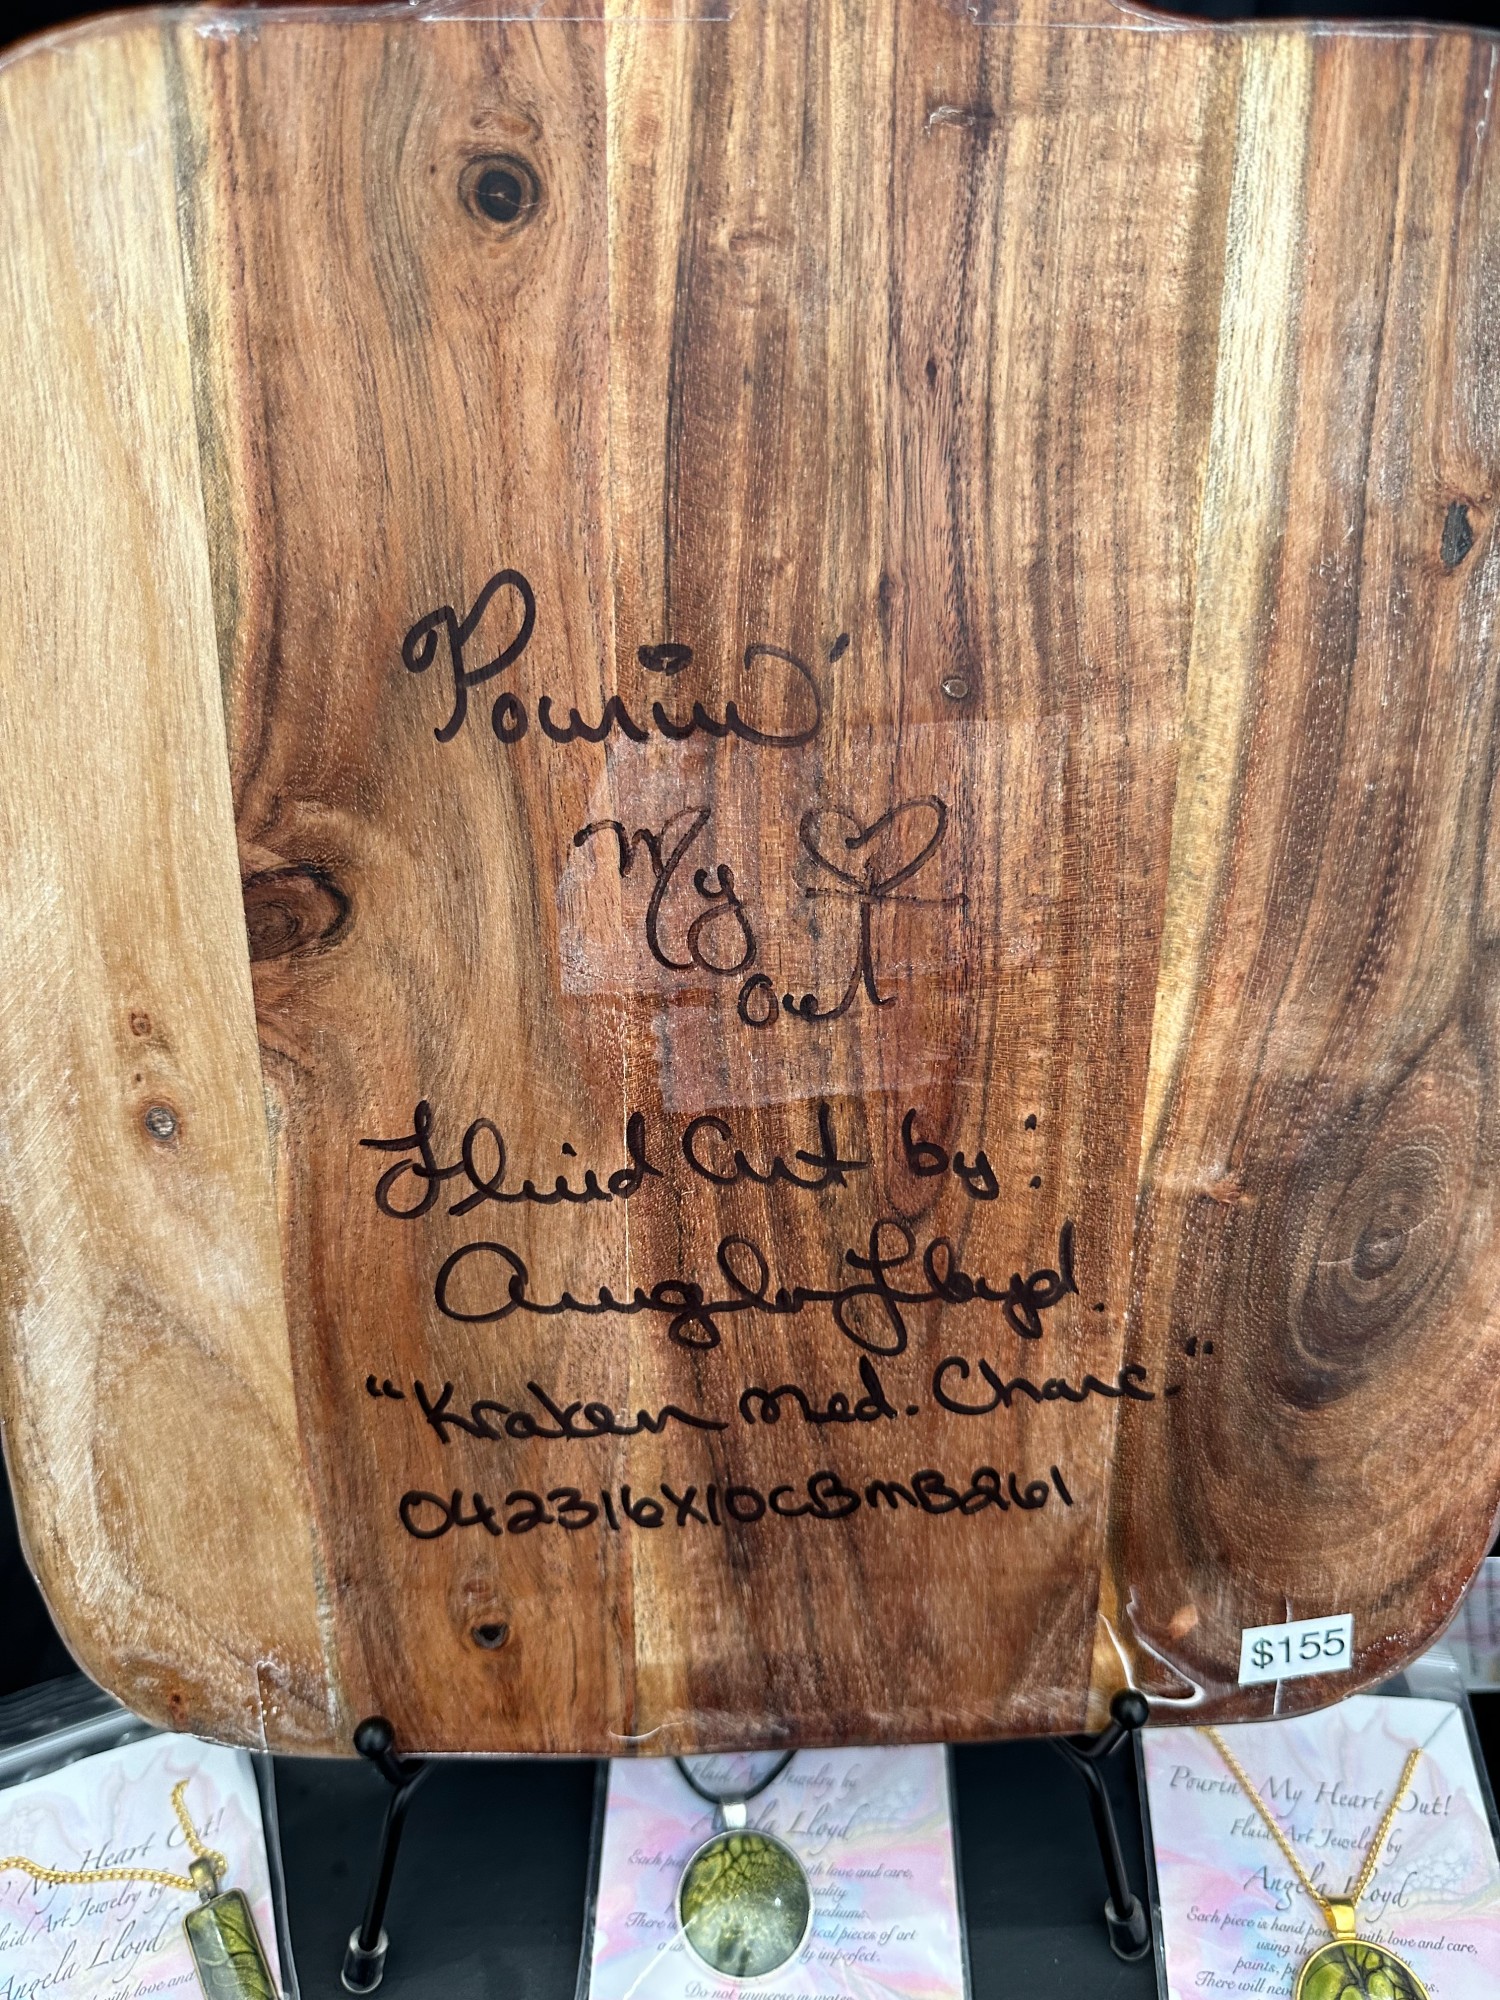 Pourin'
My
out
Fluid Art by:
Angela Lloyd.
"Kraken Med. Charc."
042316X10CBMB261
$155
My Heart Out!
Fluid Art Jewelry by
Angela Lloyd
with love and
Fluid Art Jewelry by
Angela Lloyd
Each with love and care,
mediums
There pieces of art
imperfect.
Do not immerse in water
Pourin' My Heart Out!
Fluid Art Jewelry by
Angela Lloyd
Each piece is hand with love and care,
using the
paints,
There will